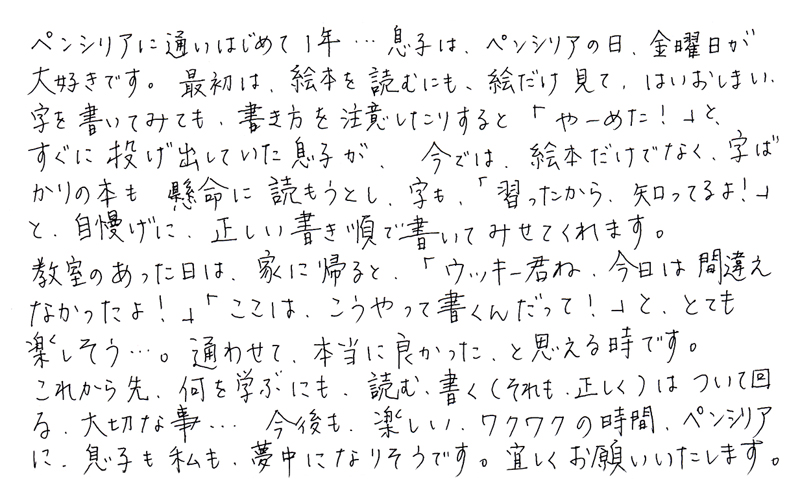 ペンシリアに通いはじめて1年…息子は、ペンシリアの日、金曜日が
大好きです。最初は、絵本を読むにも、絵だけ見て、はいおしまい、
字を書いてみても、書き方を注意したりすると「やーめた!」と、
すぐに投げ出していた息子が、今では、絵本だけでなく、字ば
かりの本も懸命に読もうとし、字も、「習ったから、知ってるよ!」
と、自慢げに、正しい書き順で書いてみせてくれます。
教室のあった日は、家に帰ると、「ウッキー君ね、今日は間違え
なかったよ!」「ここは、こうやって書くんだって!」と、とても
楽しそう…。通わせて、本当に良かった、と思える時です。
これから先、何を学ぶにも、読む、書く(それも、正しく)はついて回
る、大切な事…今後も、楽しい、ワクワクの時間、ペンシリア
に、息子も私も、夢中になりそうです。宜しくお願いいたします。